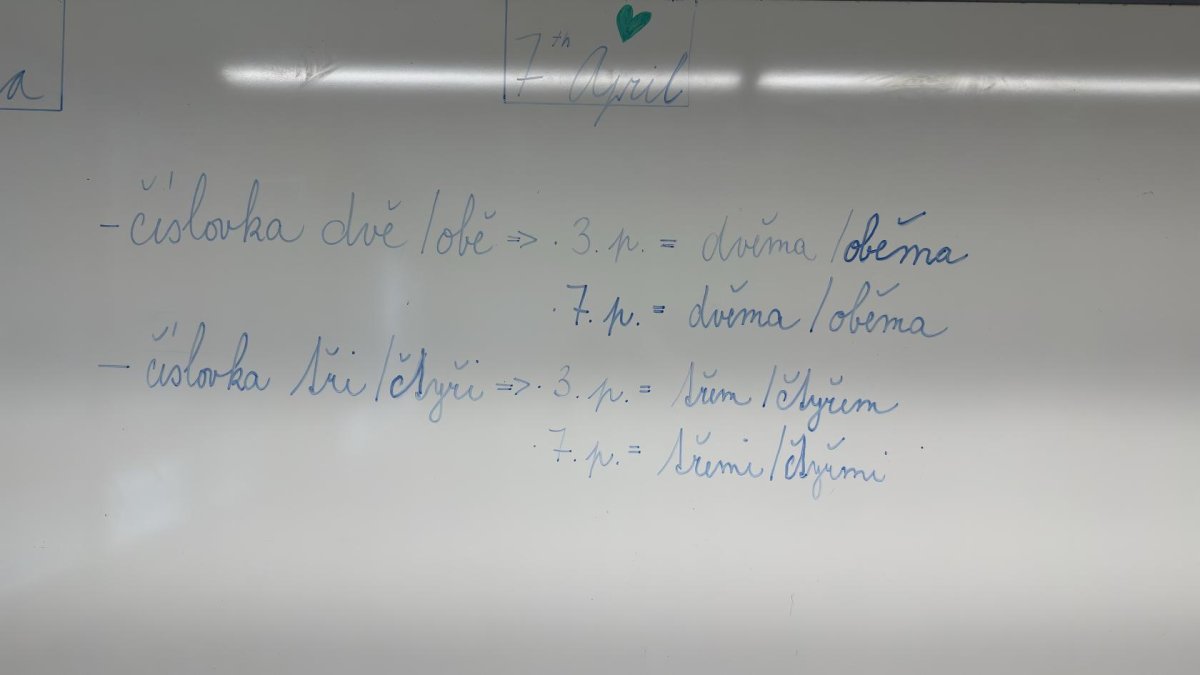 a
7th April
- číslovka dvě/obě => · 3. p. = dvěma/oběma
· 7. p. = dvěma/oběma
- číslovka tři/čtyři => · 3. p. = třem/čtyřem
· 7. p. = třemi/čtyřmi